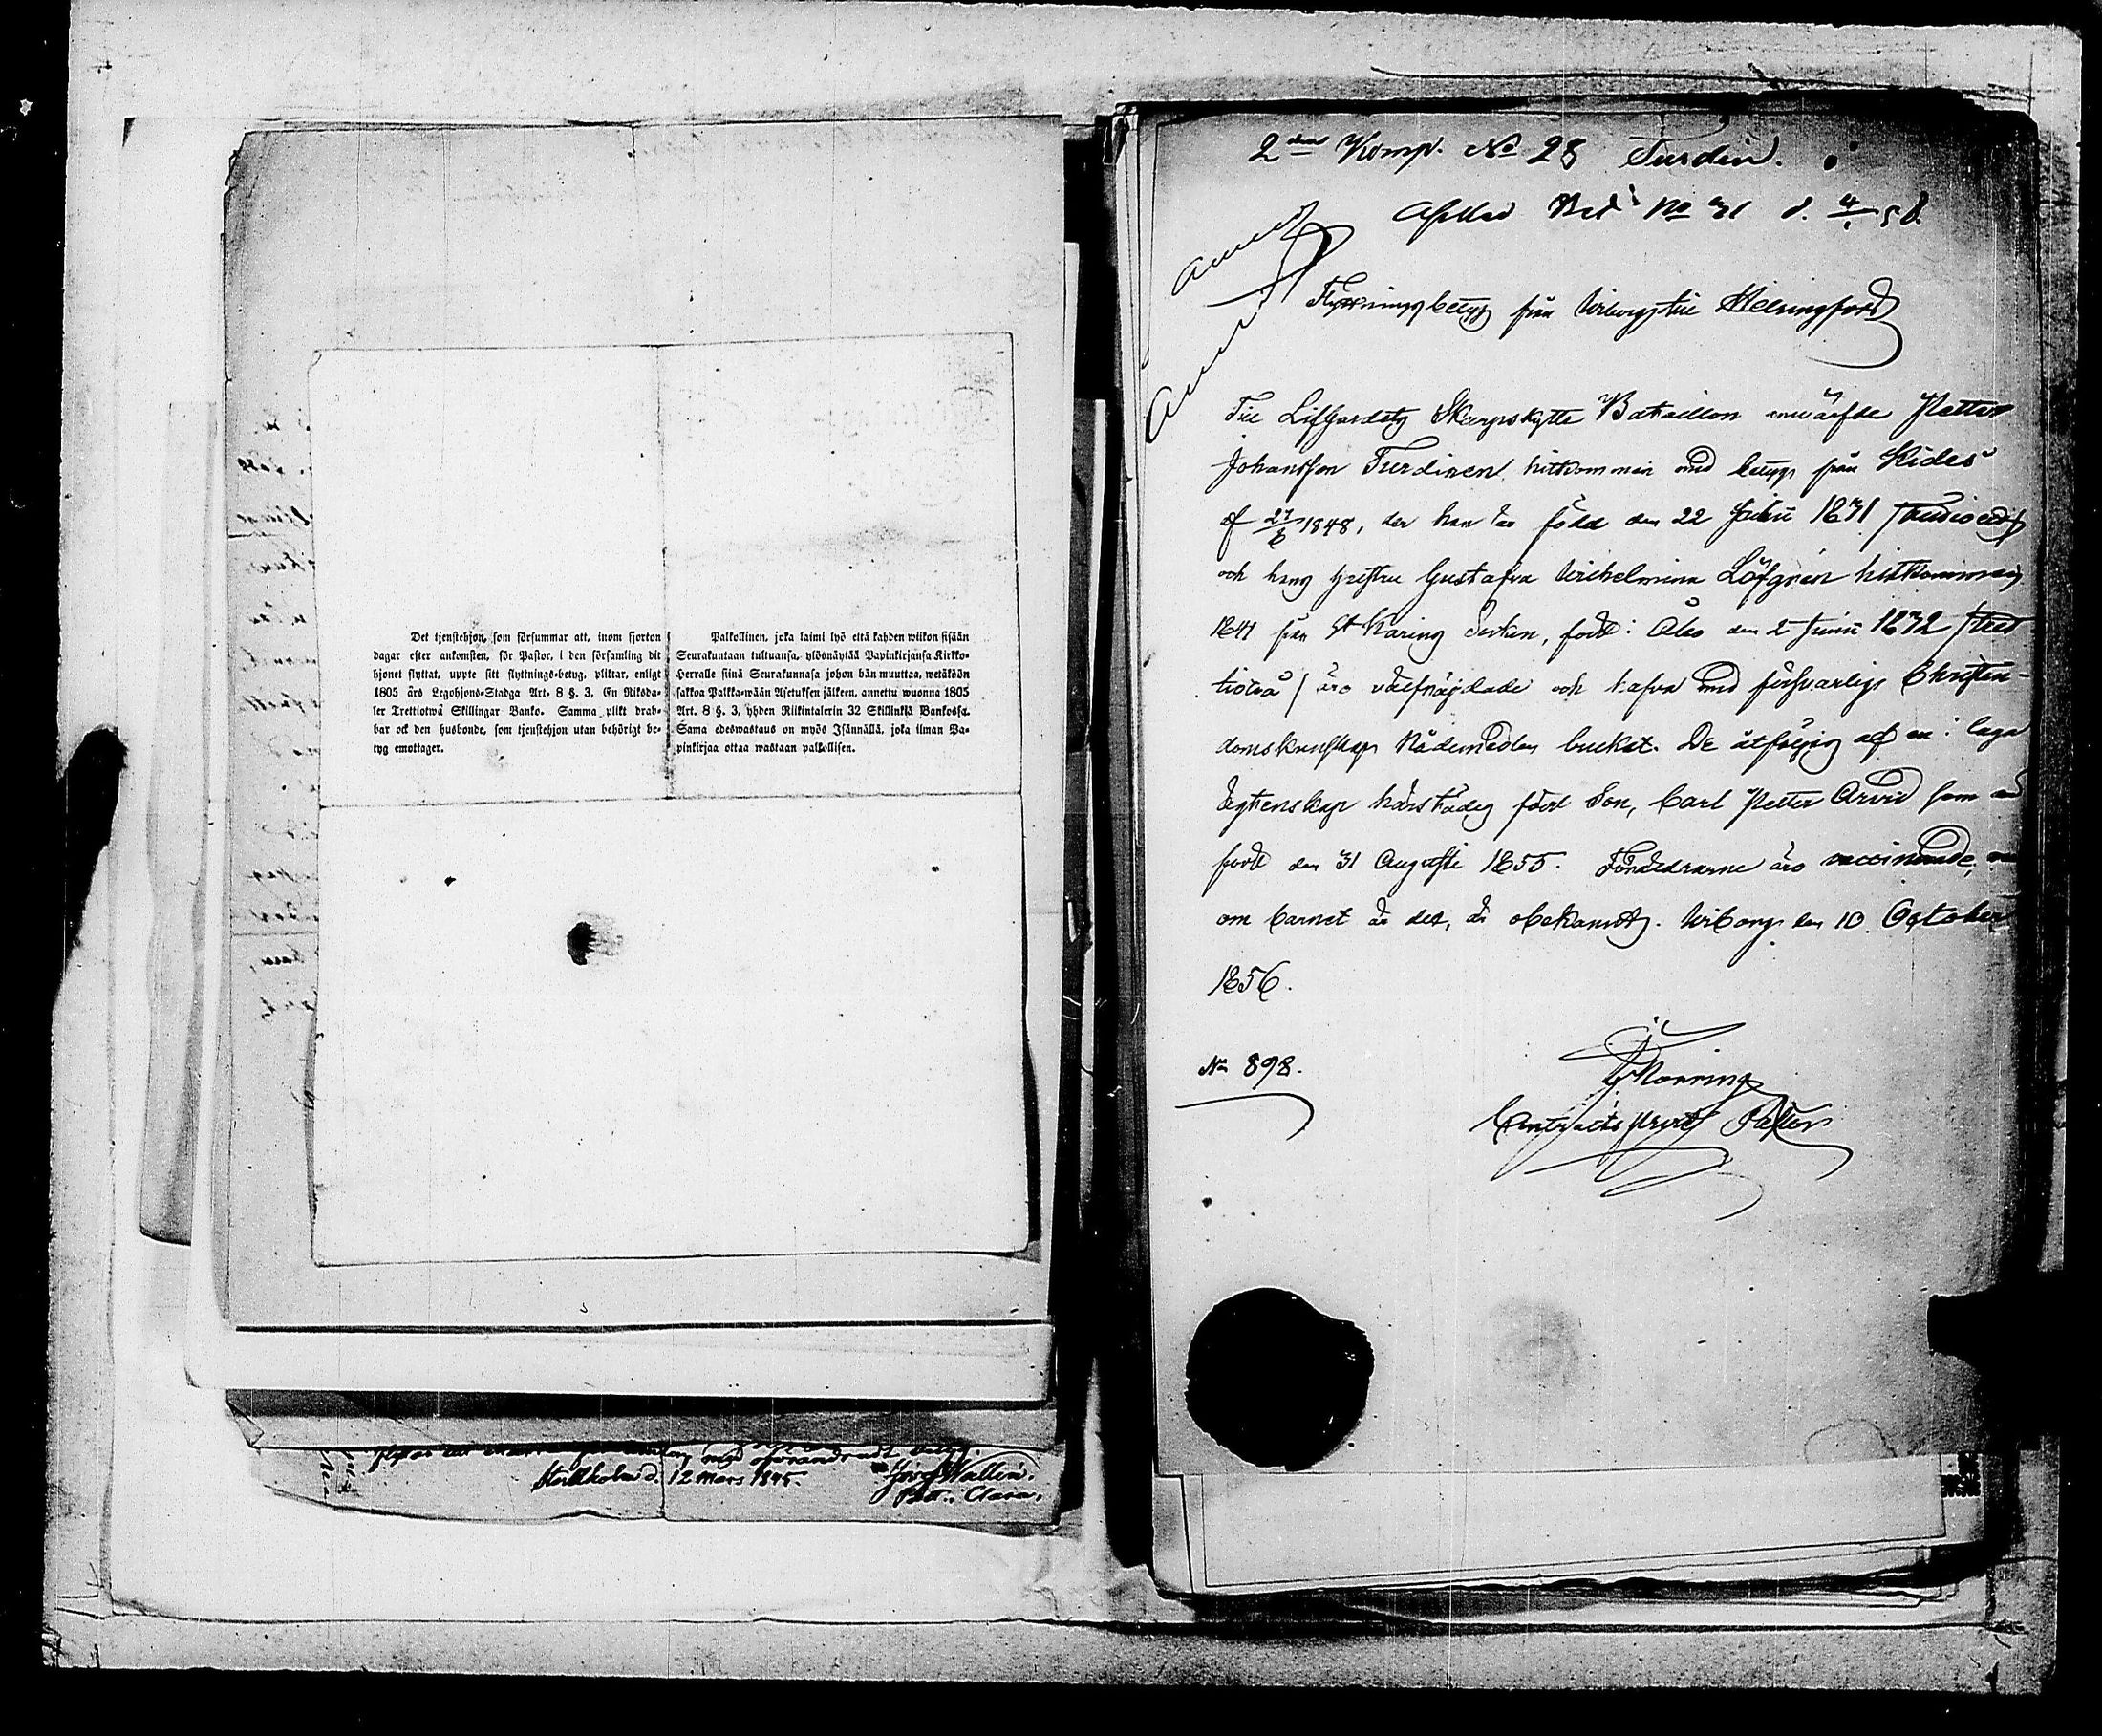 Det tjenstehjon, som försummar att, inom fjorton
dagar efter ankomsten, för Pastor, i den församling dit
hjonet flyttat, uppte sitt flyttnings-betyg, pliktar, enligt
1805 års Legohjons-Stadga Art. 8 §. 3, En Riksda-
ler Trettiotwå Skillingar Banko. Samma plikt drab-
bar ock den husbonde, som tjenstehjon utan behörigt be-
tyg emottager.
Palkollinen, joka laimi lyö että kahden wiikon sisään
Seurakuntaan tultuansa, ylösnäytää Papinkirjansa Kirkko-
Herralle siinä Seurakunnasa johon hän muuttaa, wetäköön
sakkoa Palkka-wään Asetuksen jälkeen, annettu wuonna 1805
Art. 8 §. 3, yhden Riikintalerin 32 Skillinkiä Bankossa.
Sama edeswastaus on myös Isännällä, joka ilman Pa-
pinkirjaa ottaa wastaan palkollisen.
Stockholm d. 12 mars 1845.
Wallin.
Past. i Clara.
2dra Komp. No 28 Turdin.
No 31 d.
Flyttningsbetyg från Wiborg till Helsingfors
Till Lifgardets Skarpskytte Bataillon anwärfde Petter
Johansson Turdinen hitkommen med betyg från Kides
af 27/6 1848, der han är född den 22 1831
och hans hustru Gustafva Wilhelmina Löfgrén hitkommen
från St Karins Socken, född i Åbo den 2 Junii 1832 /tret
tiotvå/ äro välfrejdade och hafva med försvarlig Christen-
domskunskap Nådemedlen brukat. De åtföljas af en i laga
ägtenskap härstädes född Son, Carl Petter Arvid som är
född den 31 Augusti 1855. Föräldrarne äro vaccinerade,
om barnet är det, är obekant. Wiborg den 10 October
1856.
No 898.
Contracts Prost Pastor